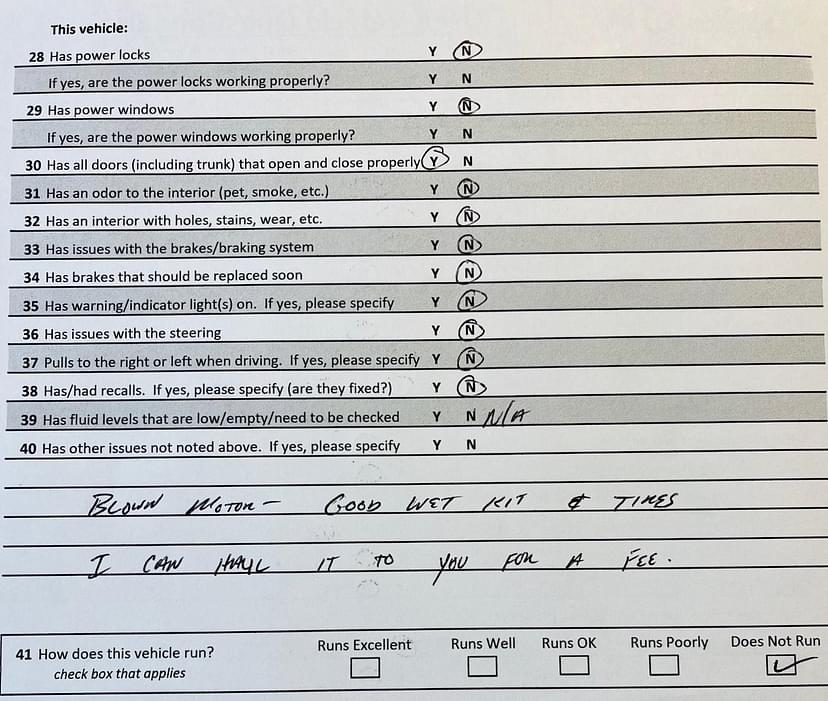 This vehicle:
28 Has power locks Y N
If yes, are the power locks working properly? Y N
29 Has power windows Y N
If yes, are the power windows working properly? Y N
30 Has all doors (including trunk) that open and close properly Y N
31 Has an odor to the interior (pet, smoke, etc.) Y N
32 Has an interior with holes, stains, wear, etc. Y N
33 Has issues with the brakes/braking system Y N
34 Has brakes that should be replaced soon Y N
35 Has warning/indicator light(s) on. If yes, please specify Y N
36 Has issues with the steering Y N
37 Pulls to the right or left when driving. If yes, please specify Y N
38 Has/had recalls. If yes, please specify (are they fixed?) Y N
39 Has fluid levels that are low/empty/need to be checked Y N N/A
40 Has other issues not noted above. If yes, please specify Y N
BLOWN MOTOR - GOOD WET KIT & TIRES
I CAN HAUL IT TO YOU FOR A FEE.
Runs Excellent Runs Well Runs OK Runs Poorly Does Not Run
41 How does this vehicle run?
check box that applies